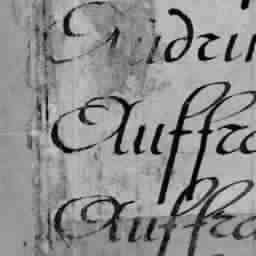 Audri
Auffra
Auffra